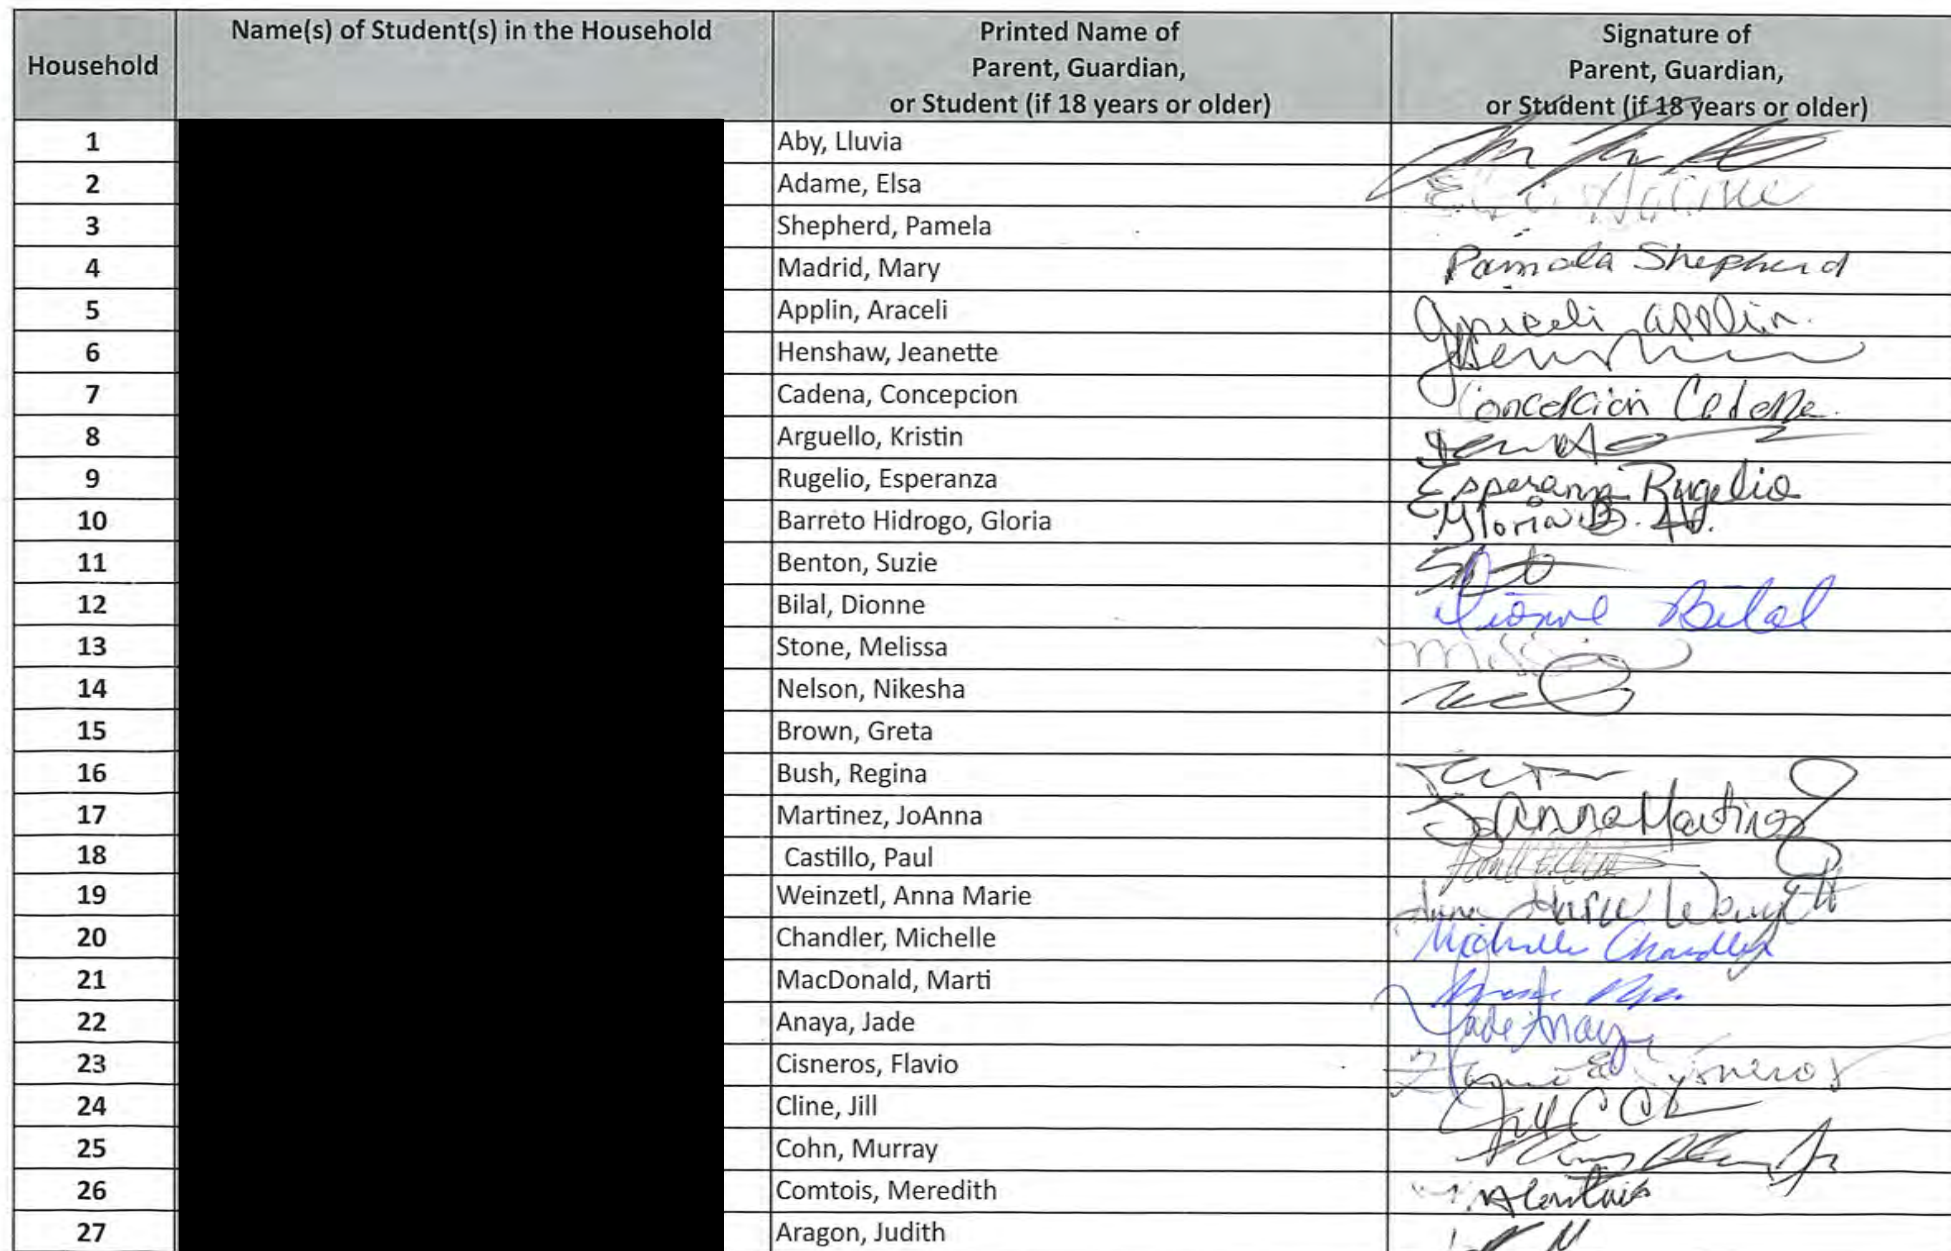 Household
Name(s) of Student(s) in the Household
Printed Name of
Parent, Guardian,
or Student (if 18 years or older)
Signature of
Parent, Guardian,
or Student (if 18 years or older)
1 Aby, Lluvia
2 Adame, Elsa
3 Shepherd, Pamela
4 Madrid, Mary Pamela Shepherd
5 Applin, Araceli Araceli Applin.
6 Henshaw, Jeanette
7 Cadena, Concepcion Concepcion Cadena.
8 Arguello, Kristin
9 Rugelio, Esperanza Esperanza Rugelio
10 Barreto Hidrogo, Gloria Gloria B. H.
11 Benton, Suzie
12 Bilal, Dionne Dionne Bilal
13 Stone, Melissa
14 Nelson, Nikesha
15 Brown, Greta
16 Bush, Regina
17 Martinez, JoAnna JoAnna Martinez
18 Castillo, Paul
19 Weinzetl, Anna Marie
20 Chandler, Michelle Michelle Chandler
21 MacDonald, Marti
22 Anaya, Jade Jade Anaya
23 Cisneros, Flavio Cisneros
24 Cline, Jill
25 Cohn, Murray
26 Comtois, Meredith
27 Aragon, Judith